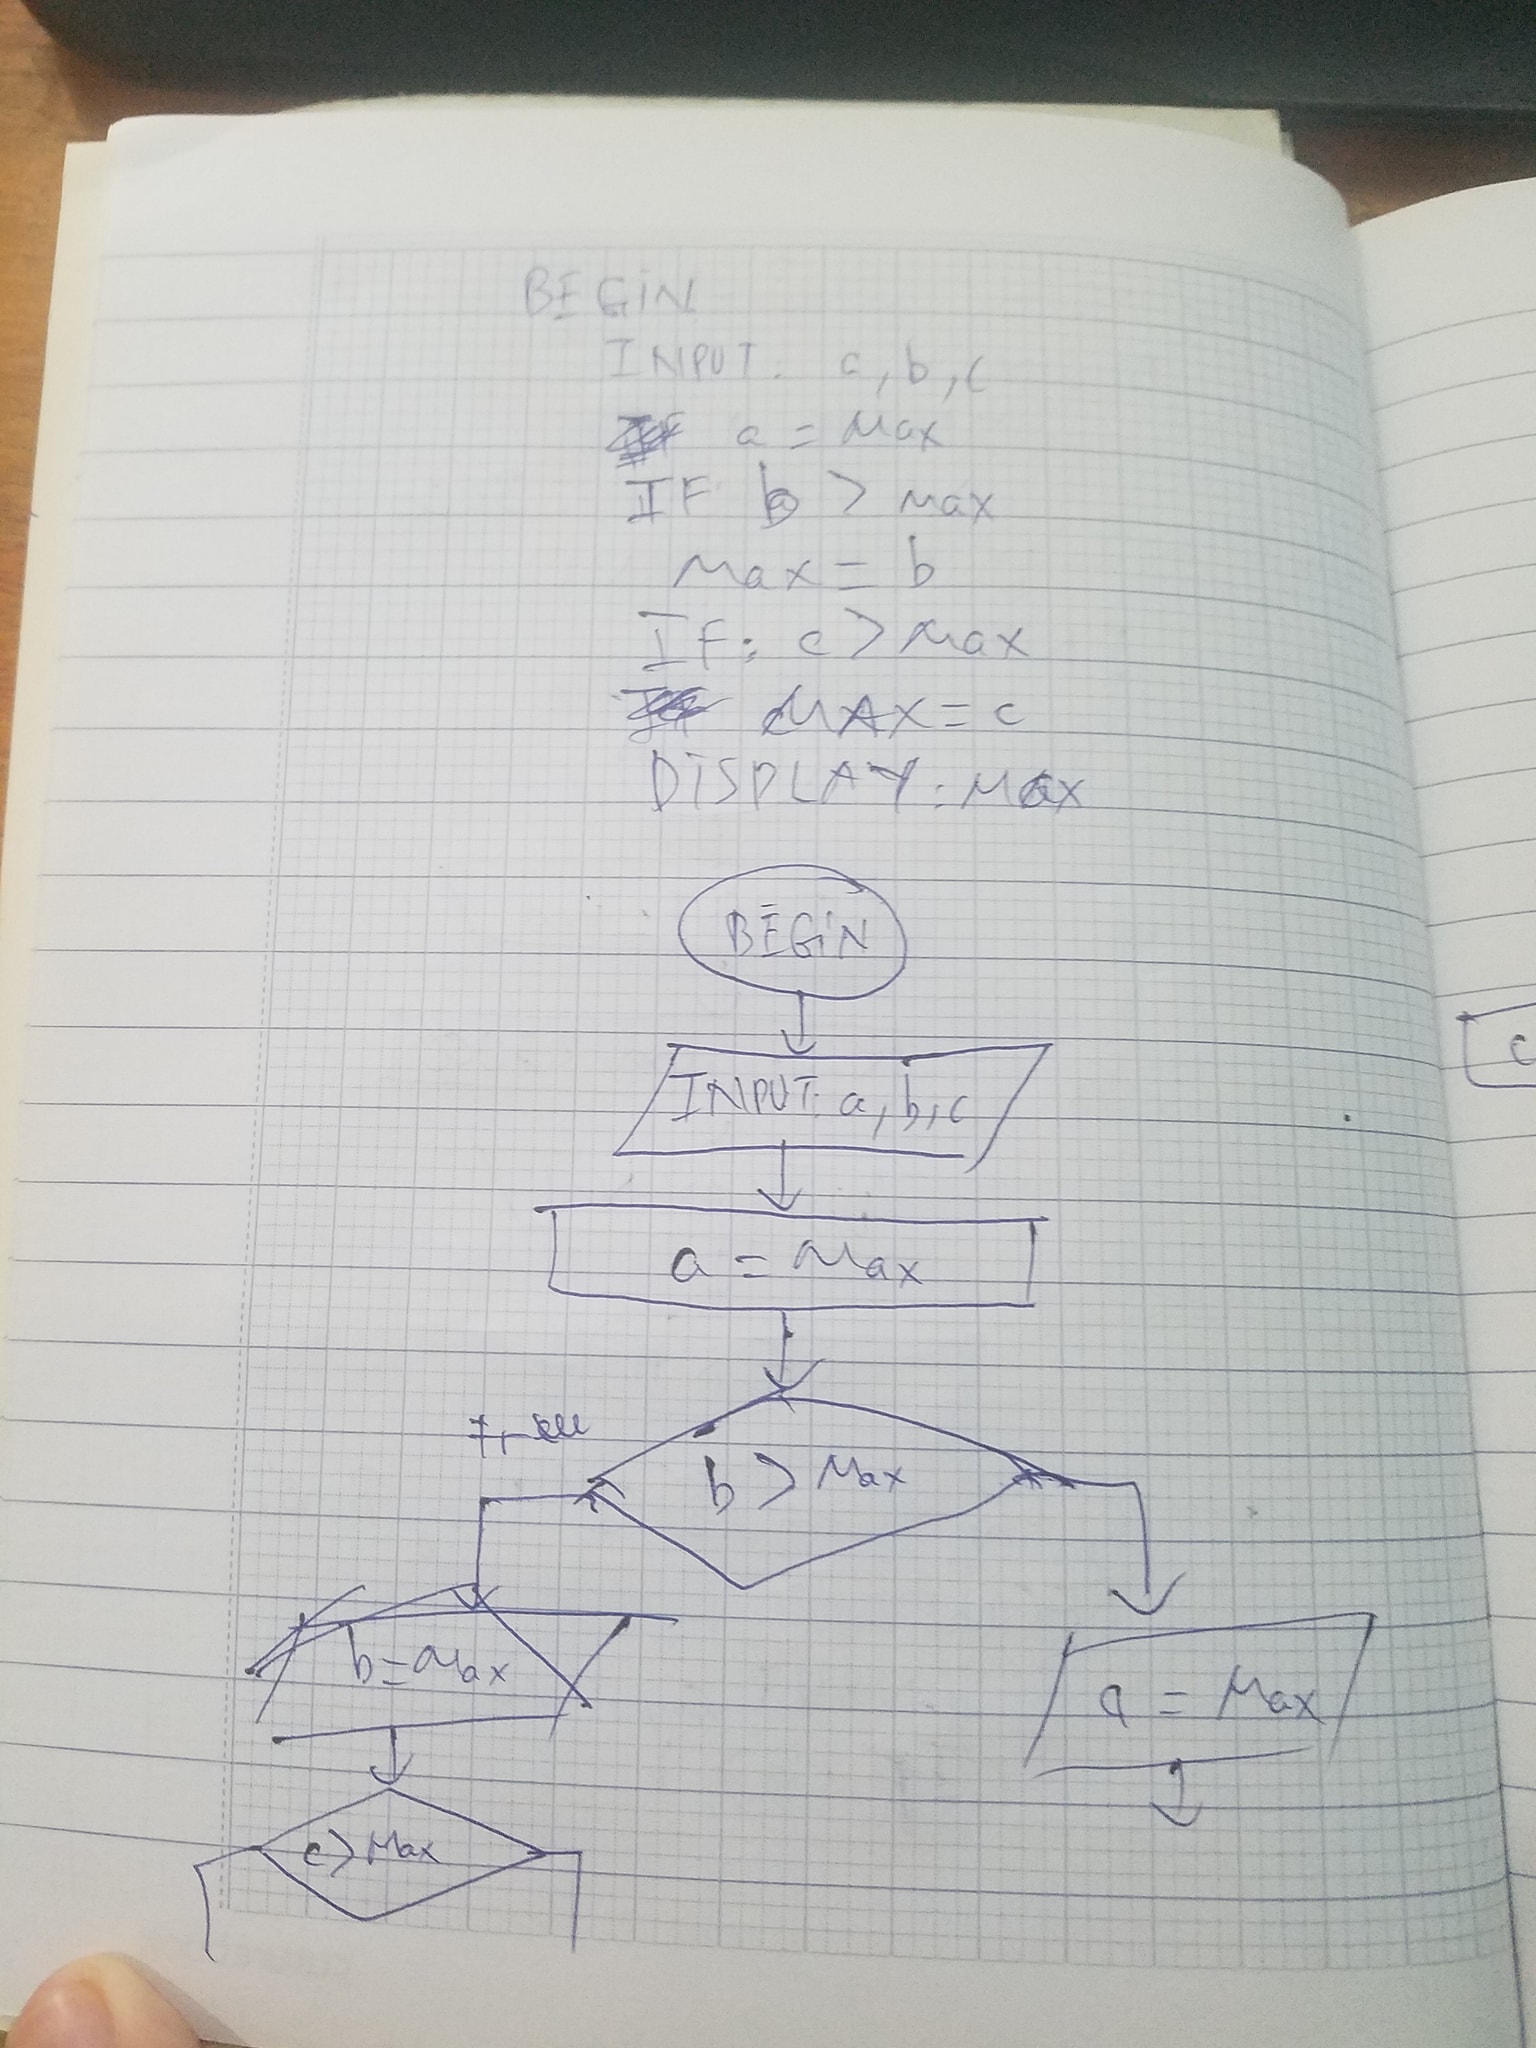 BEGIN
INPUT. a, b, c
a = Max
IF b > Max
Max = b
IF: c > Max
MAX = c
DISPLAY: Max
BEGIN
INPUT: a, b, c
a = Max
b > Max
b = Max
a = Max
c > Max
c